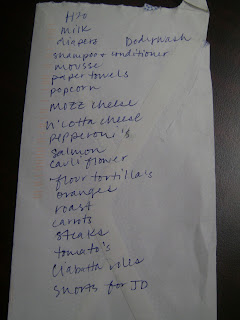 H2O
milk
diapers Bodywash
shampoo + conditioner
mousse
paper towels
popcorn
mozz cheese
ricotta cheese
pepperoni's
salmon
cauliflower
flour tortilla's
oranges
roast
carrots
steaks
tomato's
Ciabatta rolls
shorts for JD